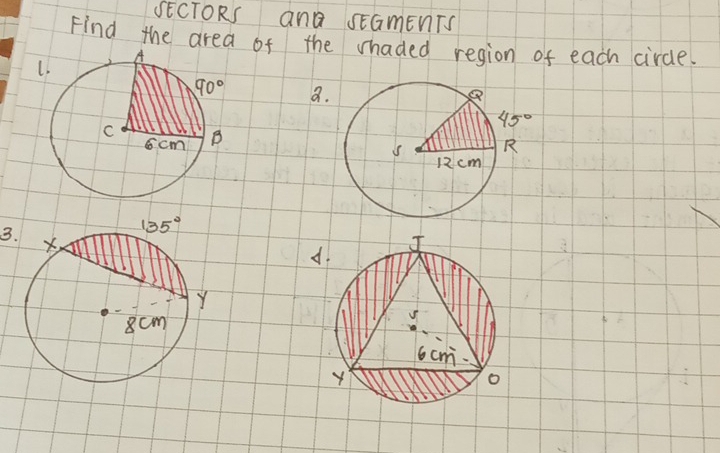 SECTORS and SEGMENTS
Find the area of the shaded region of each circle.
1.
A
90°
C
6cm
B
2.
Q
45°
S
R
12cm
3.
135°
X
Y
8cm
4.
J
S
6cm
Y
O